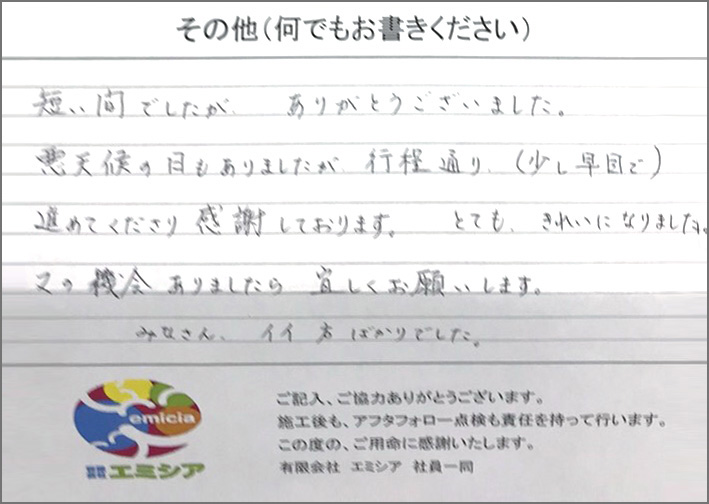 その他(何でもお書きください)
短い間でしたが、ありがとうございました。
悪天候の日もありましたが、行程通り、(少し早目で)
進めてくださり感謝しております。とても、きれいになりました。
又の機会ありましたら宜しくお願いします。
みなさん、イイ方ばかりでした。
emicia
エミシア
ご記入、ご協力ありがとうございます。
施工後も、アフタフォロー点検も責任を持って行います。
この度の、ご用命に感謝いたします。
有限会社 エミシア 社員一同